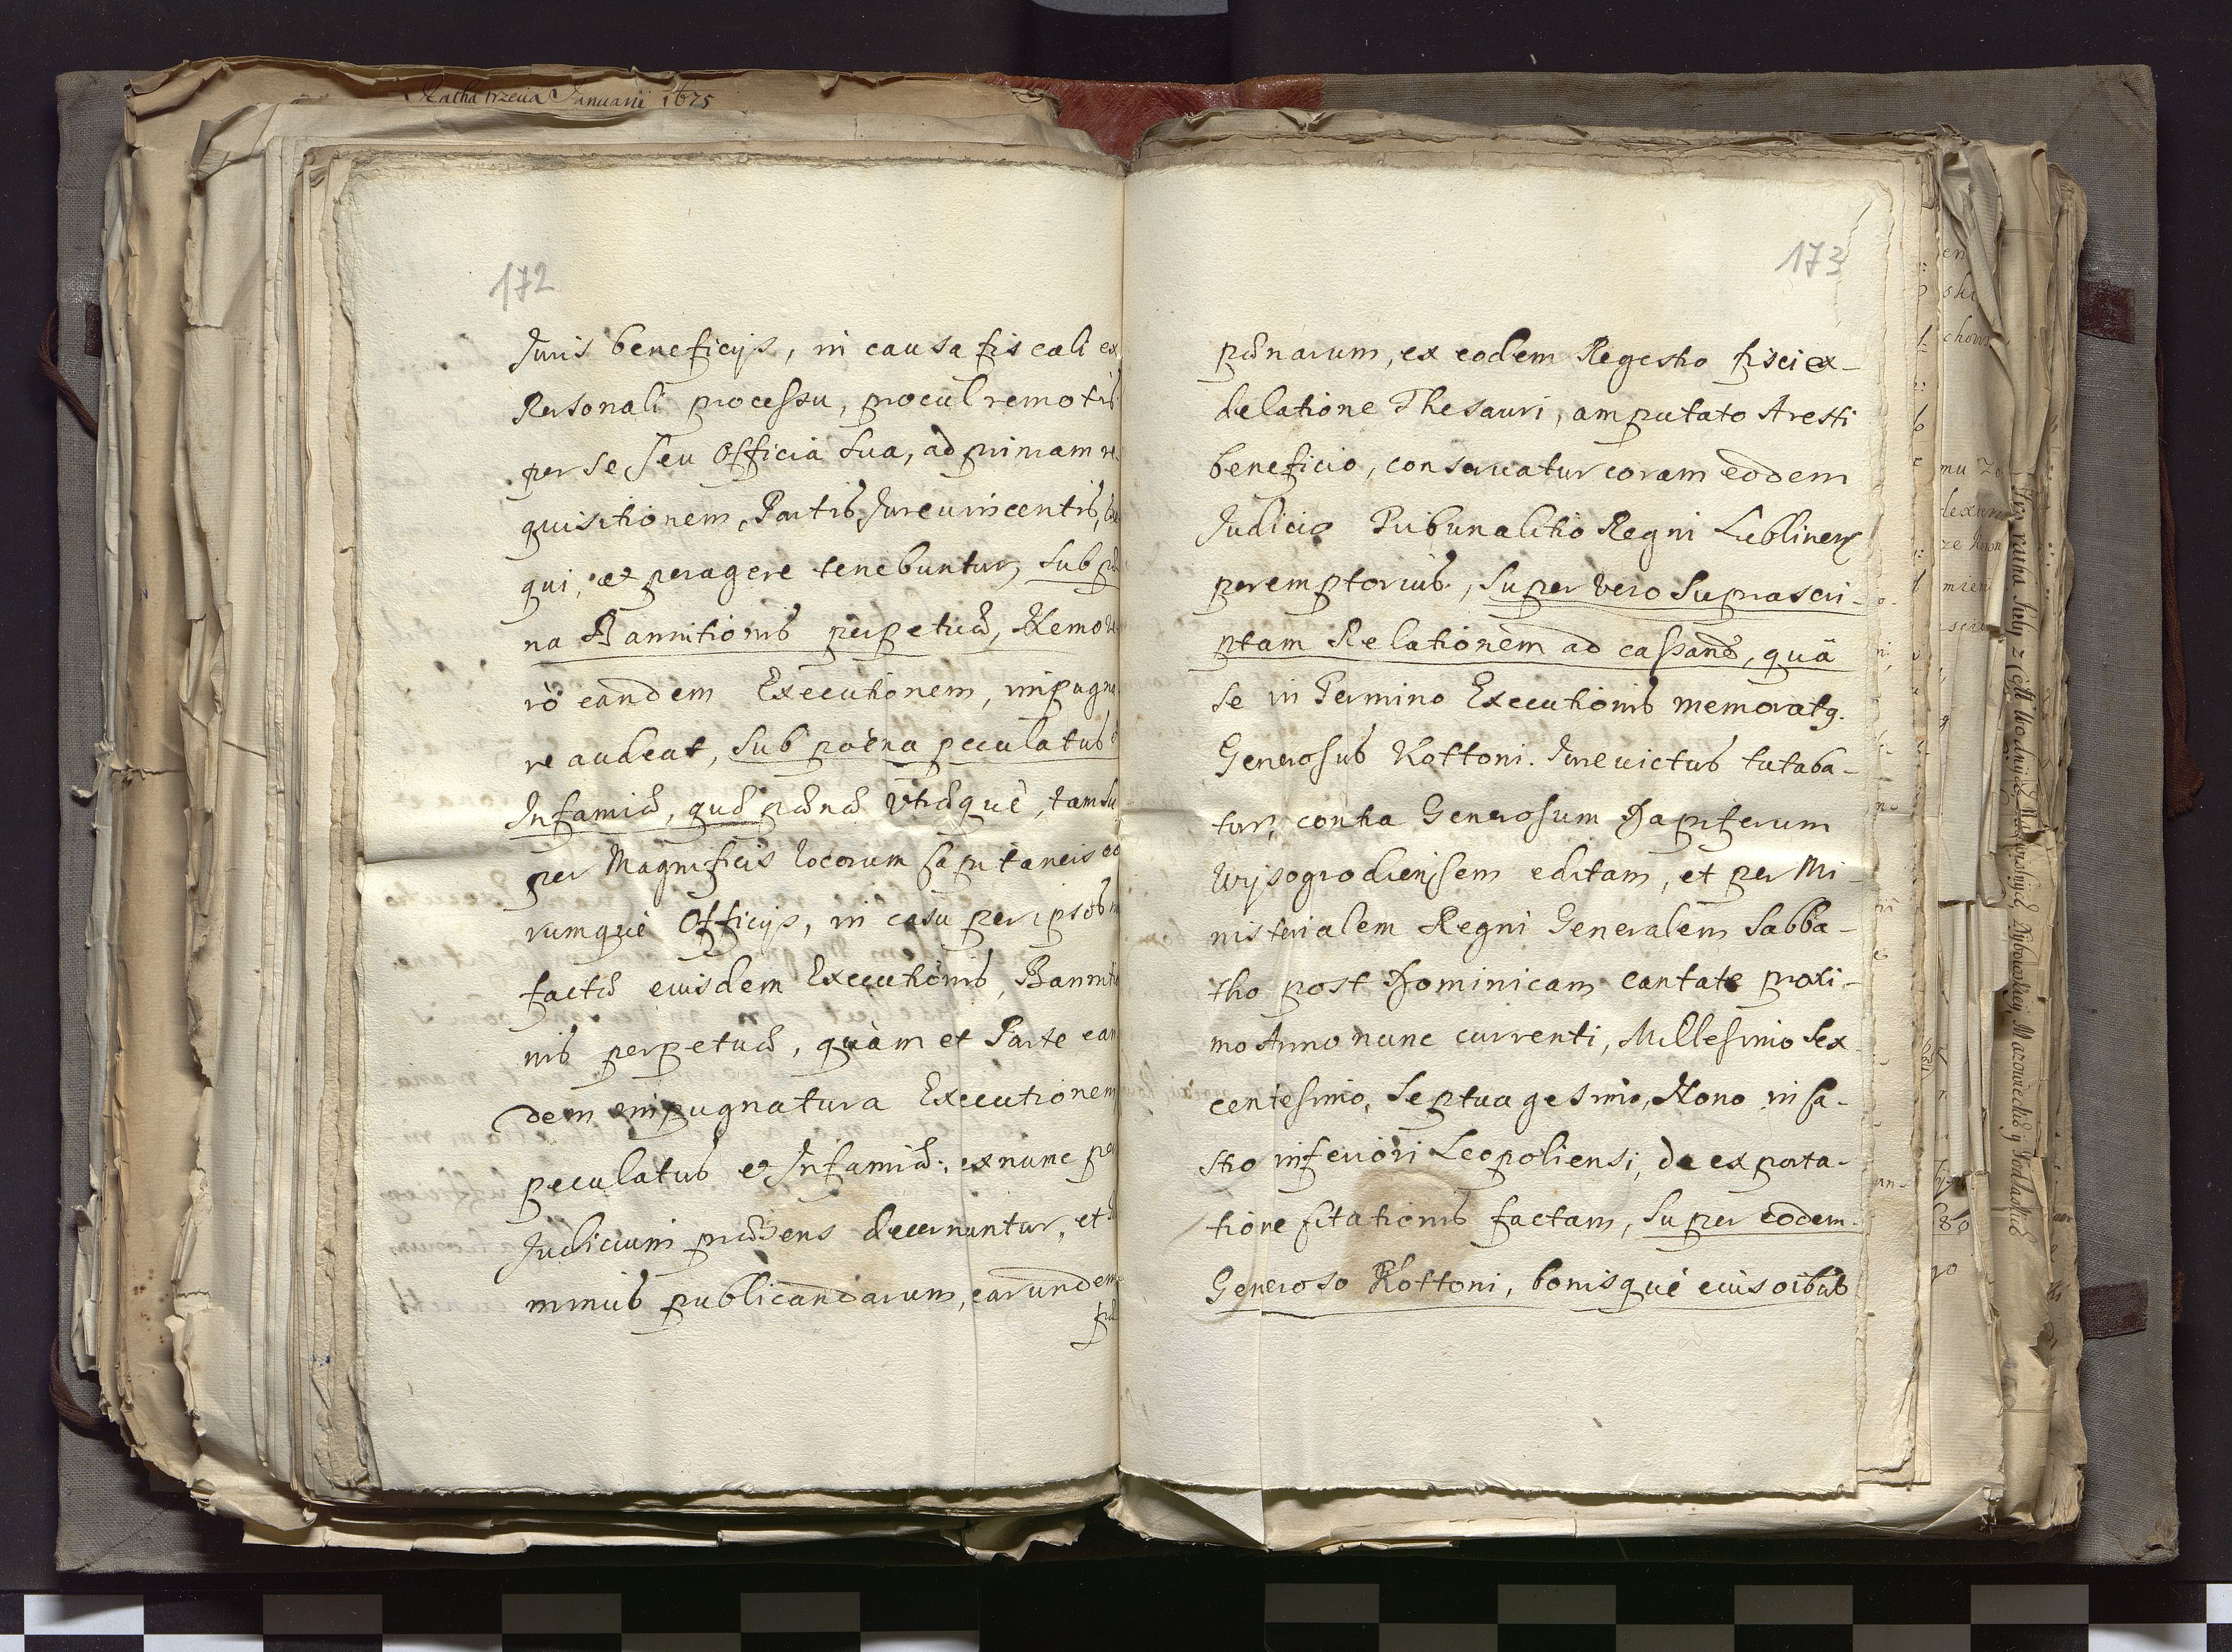 Ratha trzecia Januarii 1675
172
Juris beneficijs, in causa fiscali ex
Personali processu, procul remotis
per se seu Officia sua, ad primam re¬
quisitionem, Partis Jurevincentis, 
qui, et peragere tenebuntur, sub pæ
na Bannitionis perpetuæ, Nemo ve
rò eandem Executionem, impugna
re audeat, sub poena peculatus et
Infamiæ, quæ pænæ utræque, tam su
per Magnificis locorum Capitaneis eo
rumque Officijs, in casu per ipsos non
factæ eiusdem Executionis, Bannitio
nis perpetuæ, quàm et Parte ean
dem impugnatura Executionem
peculatus et Infamiæ, ex nunc per
Judicium præsens decernuntur, et
minus publicandarum, earundem
pæ
173
pænarum, ex eodem Regestro fisci ex
delatione Thesauri, amputato Aresti
beneficio, conservatur coram eodem
Judicio Tribunalitio Regni Lublinen
peremptorius, super vero suprascri-
ptam Relationem ad cassand, quâ
se in Termino Executionis memoratq.
Generosus Kottoni. Jurevictus tutaba-
tur, contra Generosum Dapiferum
Wysogrodiensem editam, et per Mi-
nisterialem Regni Generalem Sabba-
tho post Dominicam Cantate proxi-
mo Anno nunc currenti, Millesimo Sex
centesimo, Septuagesimo, Nono in Ca-
stro inferiori Leopoliensi, de exporta-
tione Citationis factam, super eodem
Generoso Kottoni, bonisque eius oibus